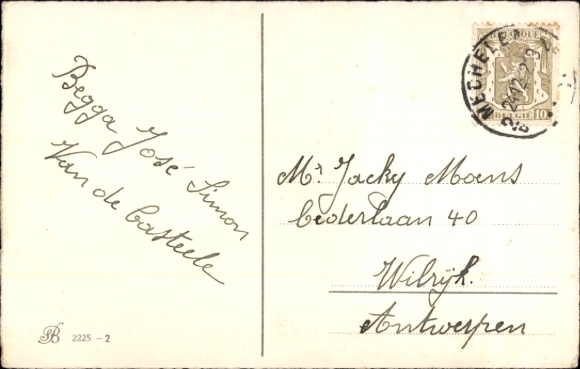 Begga José Simon
Van de Casteele
BELGIQUE
MECHELEN
BELGIE 10
Mr Jacky Moens
Cederlaan 40
Wilrijk.
Antwerpen
2225 - 2